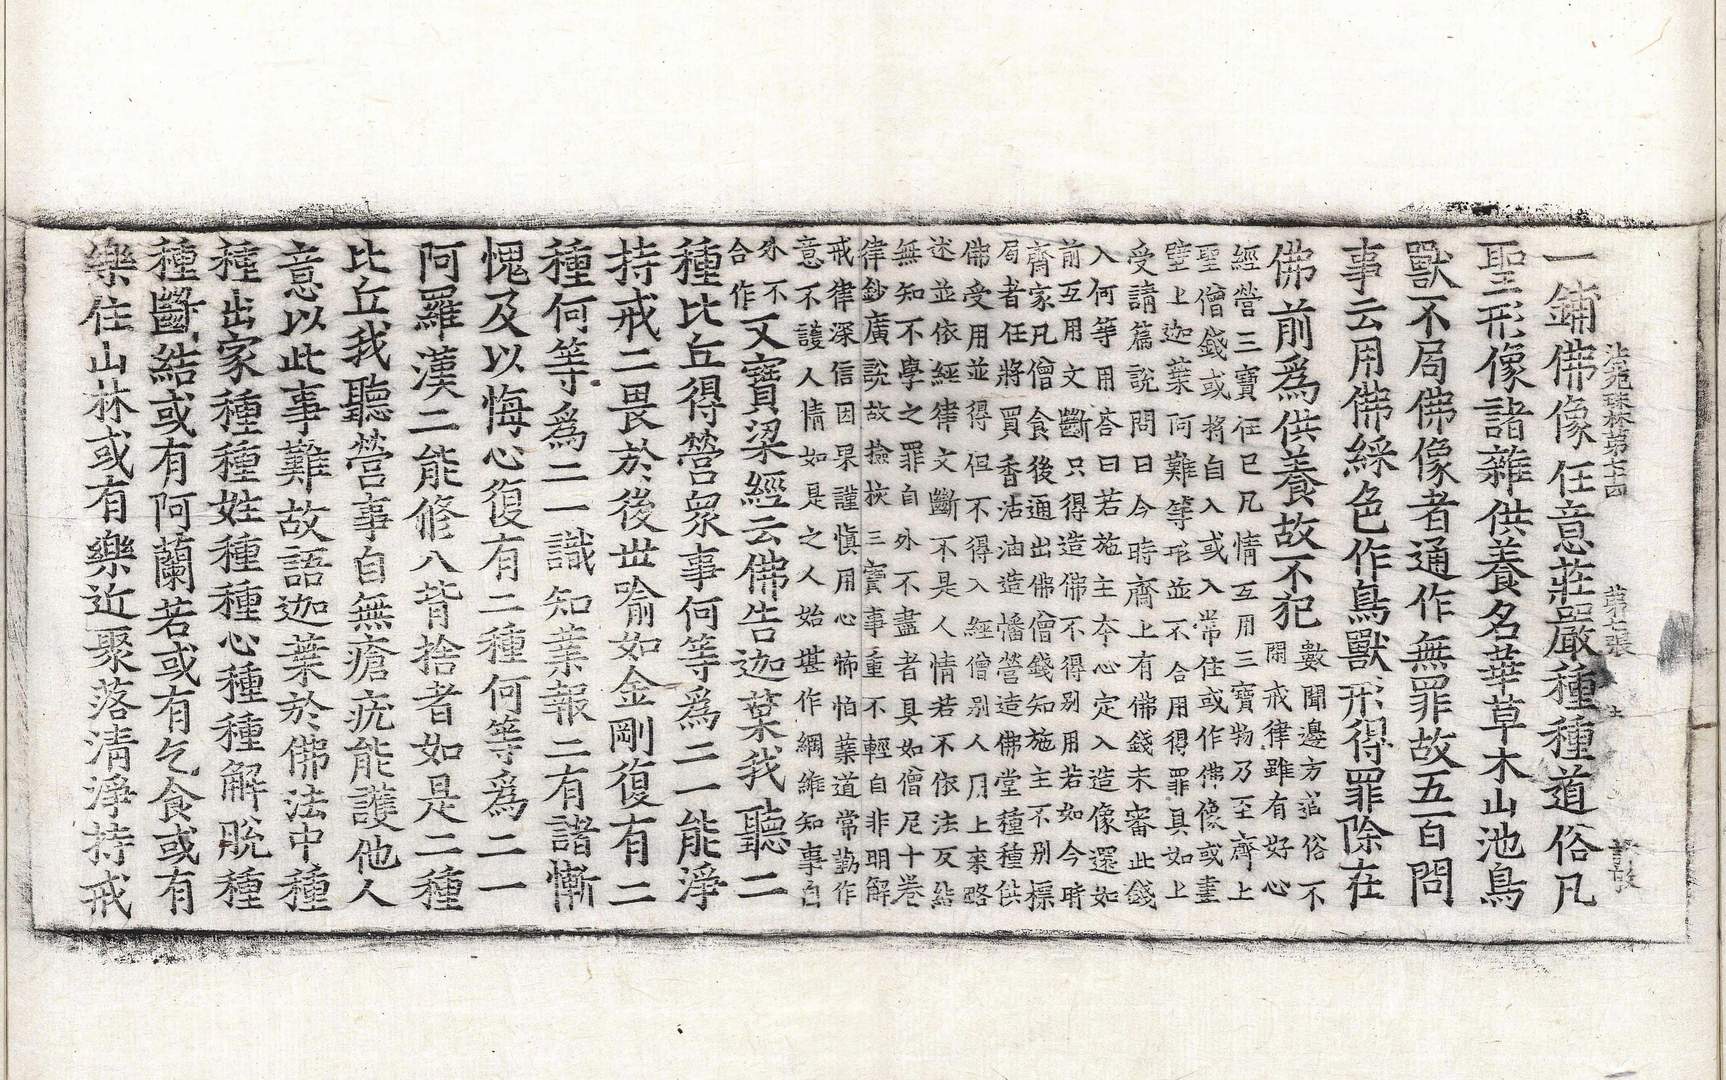 法苑珠林第七十四 第七張
一鋪佛像任意莊嚴種種道俗凡
聖形像諸雜供養名華草木山池鳥
獸不局佛像者通作無罪故五百問
事云用佛綵色作鳥獸形得罪除在
佛前爲供養故不犯數聞邊方道俗不
閑戒律雖有好心
經營三寶任已凡情互用三寶物乃至齋上
聖僧錢或將自入或入常住或作佛像或畫
壁上迦葉阿難等形並不合用得罪具如上
受請篇說問曰今時齋上有佛錢未審此錢
入何等用荅曰若施主本心定入造像還如
前互用文斷只得造佛不得别用若如今時
齊家凡僧食後通出佛僧錢知施主不别標
局者任將買香活油造幡營造佛堂種種供
佛受用並得但不得入經僧别人用上來略
述並依經律文斷不是人情若不依法反結
無知不學之罪自外不盡者具如僧尼十卷
律鈔廣說故撿挾三寶事重不輕自非明解
戒律深信因果謹慎用心怖怕業道常勤作
意不護人情如是之人始堪作綱維知事自
外不
合作又寶梁經云佛告迦葉我聽二
種比丘得營衆事何等爲二一能淨
持戒二畏於後世喻如金剛復有二
種何等爲二一識知業報二有諸慚
愧及以悔心復有二種何等爲二一
阿羅漢二能修八背捨者如是二種
比丘我聽營事自無瘡疣能護他人
意以此事難故語迦葉於佛法中種
種出家種種姓種種心種種解脫種
種斷結或有阿蘭若或有乞食或有
樂住山林或有樂近聚落清淨持戒